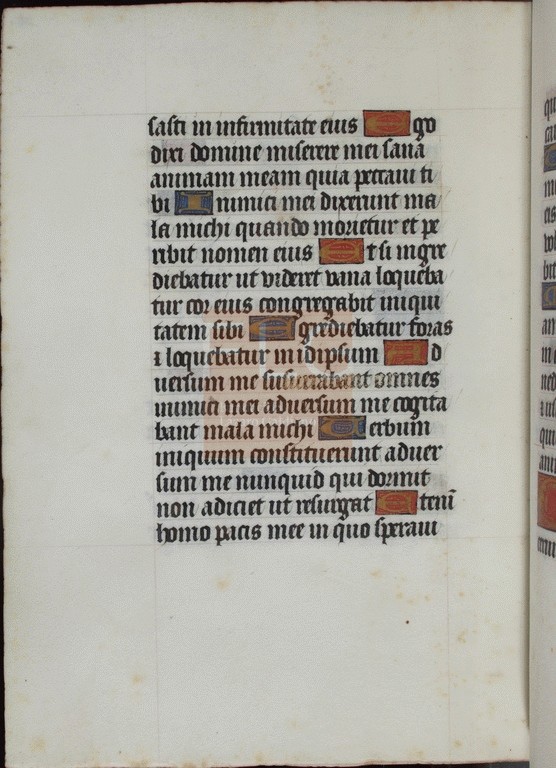 sasti in infirmitate eius Ego
dixi domine miserere mei sana
animam meam quia peccaui ti
bi Inimici mei dixerunt ma
la michi quando morietur et pe
ribit nomen eius Et si ingre
diebatur ut videret vana loqueba
tur cor eius congregabit iniqui
tatem sibi Egrediebatur foras
⁊ loquebatur in idipsum Ad
uersum me susurrabant omnes
inimici mei aduersum me cogita
bant mala michi Uerbum
iniquum constituerunt aduer
sum me nunquid qui dormit
non adiciet ut resurgat Etenī
homo pacis mee in quo speraui